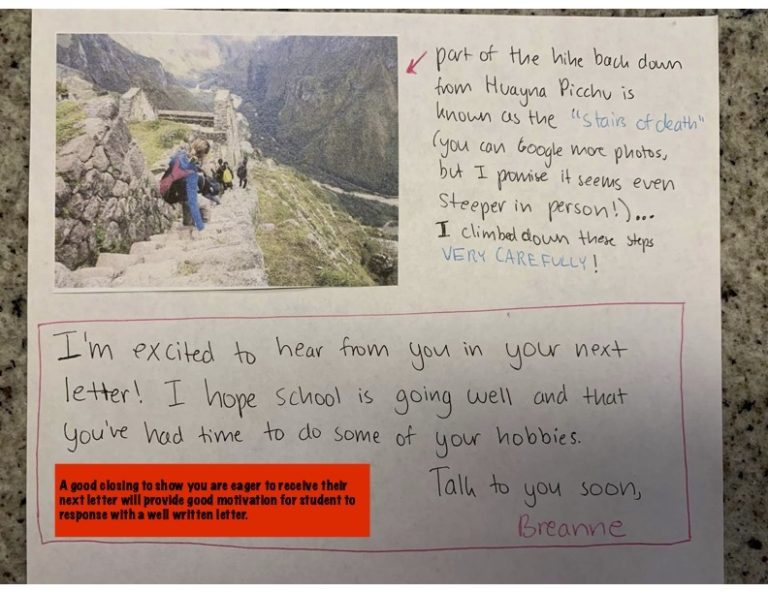 part of the hike back down
from Huayna Picchu is
known as the "stairs of death"
(you can Google more photos,
but I promise it seems even
steeper in person!)...
I climbed down these steps
VERY CAREFULLY!
I'm excited to hear from you in your next
letter! I hope school is going well and that
you've had time to do some of your hobbies.
Talk to you soon,
Breanne
A good closing to show you are eager to receive their
next letter will provide good motivation for student to
response with a well written letter.